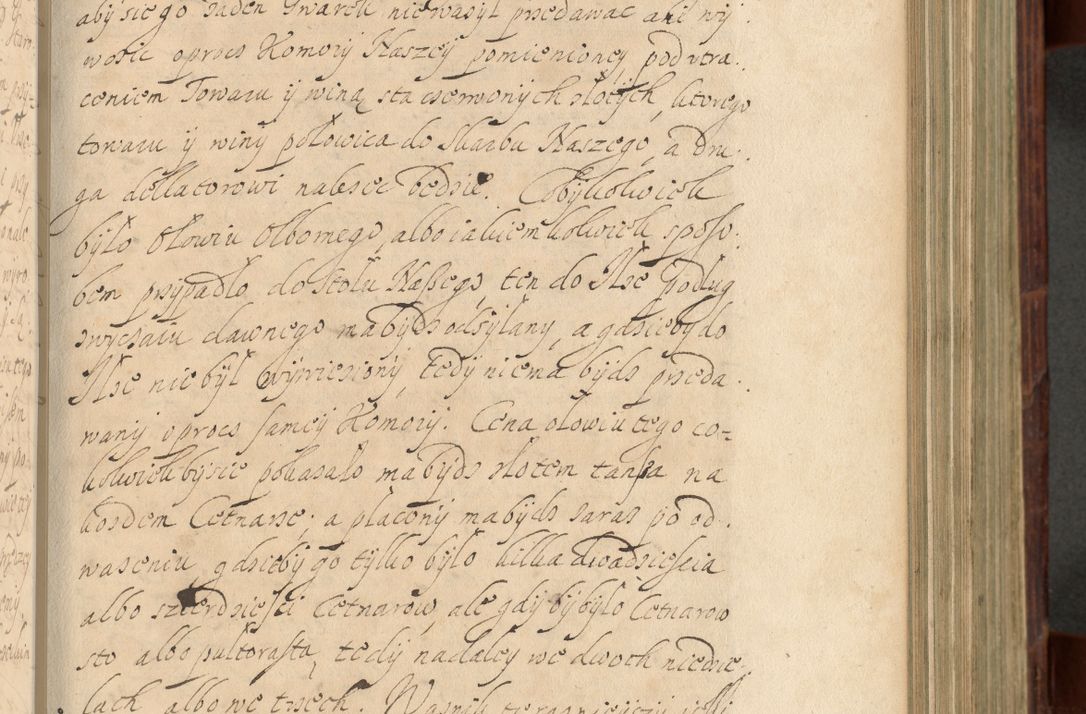 aby sie go zaden Gwarek nie wazył przedawac ani wy
wozic oprocz Komory Naszey pomienioney, pod vtra.
ceniem Towaru y winą sta czerwonych złotych, ktorego
towaru y winy połowica do Skarbu Naszego, a dru.
ga dellatorowi nalezec będzie. Cobykolwiek
było Ołowiu Olbornego, albo iakiemkolwiek sposo.
bem przypadło do Stołu Naszego, ten do Ilze podług
zwyczaiu dawnego ma bydz odsyłany, a gdzieby do
Ilze nie był wywieziony, tedy niema bydz przeda.
wany oprocz samey Komory. Cena ołowiu tego co=
kolwiek by sie pokazało ma bydz złotem tansza na
kozdem Cetnarze; a płacony ma bydz zaraz po od.
wazeniu, gdzieby go tylko było kilka dwadziescia
albo szterdziesci Cetnarow, ale gdy by było Cetnarow
sto albo pułtorasta, tedy nadaley we dwoch niedzie
lach albo we trzech.